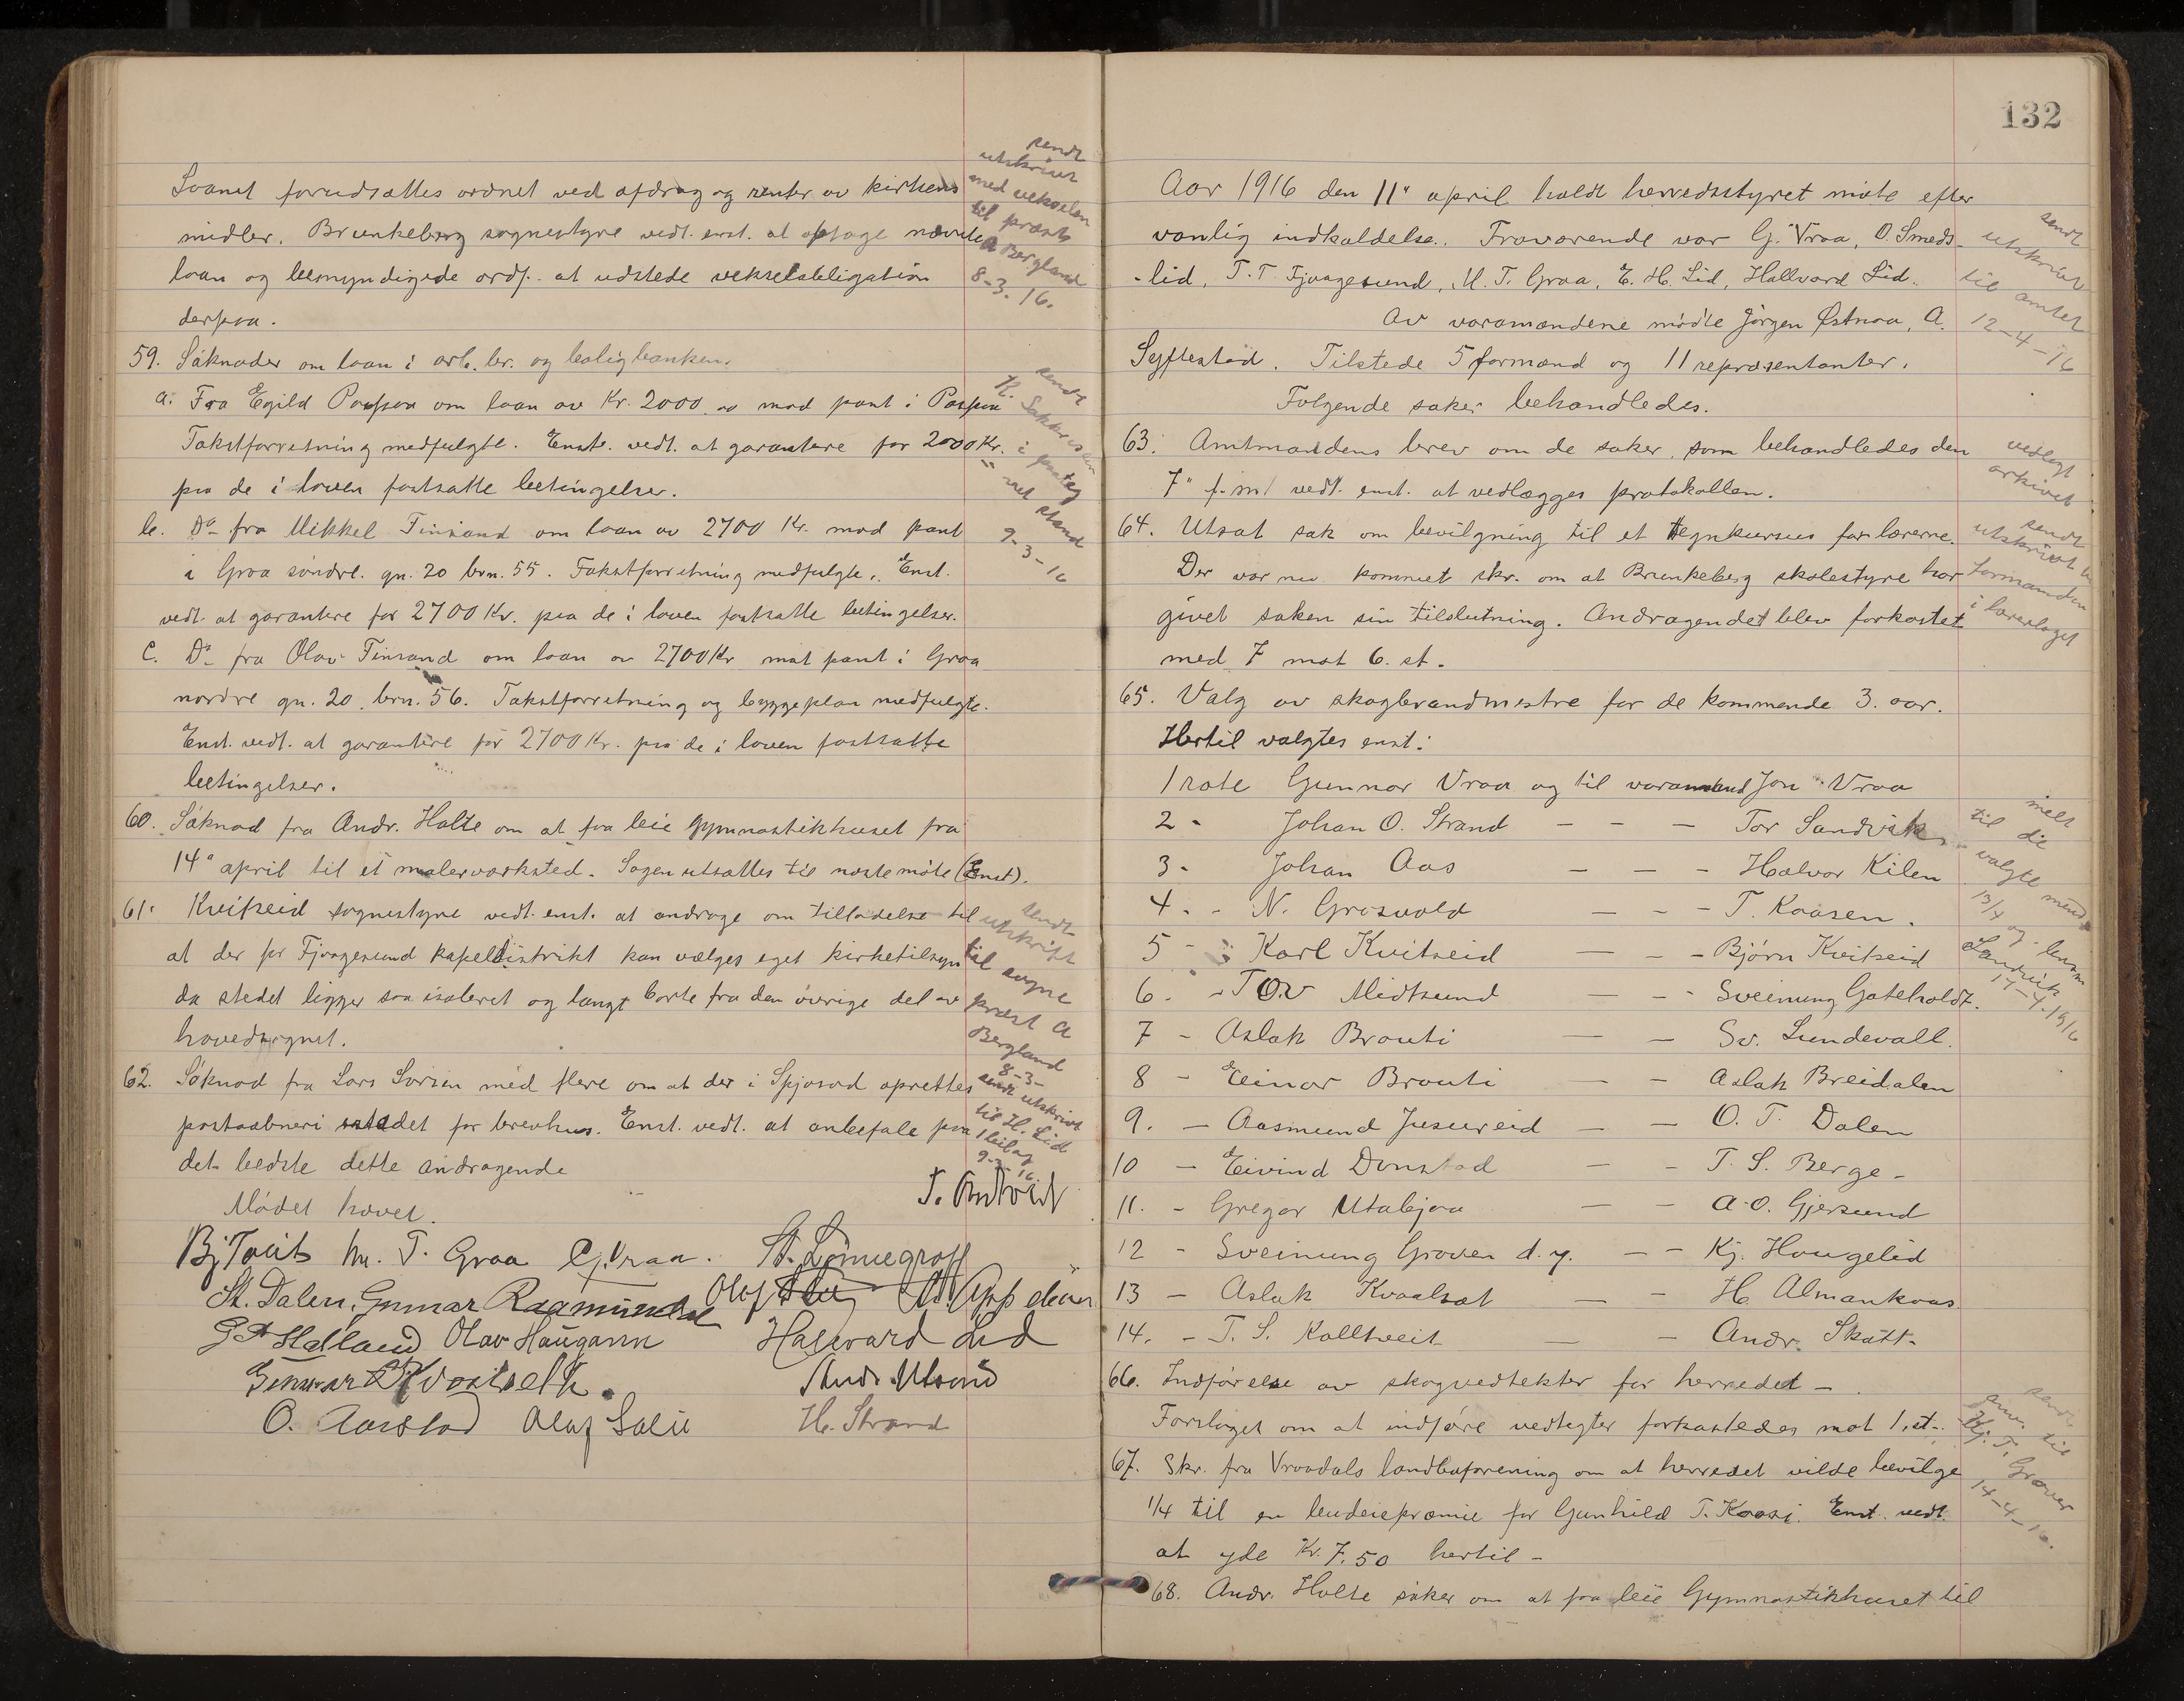 Laanet forudsættes ordnet ved afdrag og renter av kirkens
midler. Brunkeberg sognestyre vedt. enst. at optage nævnte
laan og bemyndigede ordf. at udstede vekselobligation
derpaa.
59. Søknader om laan i arb. br. og boligbanken.
a. Fra Egild
om laan av Kr. 2000,00 mod pant i
Takstforretning medfulgte. Enst. vedt. at garantere for 2000 Kr.
paa de i loven fastsatte betingelser.
b. Do fra Mikkel Tinsand om laan av 2700 Kr. mod pant
i Groa søndre. gn. 20 brn. 55. Takstforretning medfulgte. Enst.
vedt. at garantere for 2700 Kr. paa de i loven fastsatte betingelser.
c. Do fra Olav Tinsand om laan av 2700 Kr mot pant i Groa
nordre gn. 20. brn. 56. Takstforretning og byggeplan medfulgte.
Enst. vedt. at garantere for 2700 Kr. paa de i loven fastsatte
betingelser.
60. Søknad fra Andr. Holte om at faa leie Gymnastikhuset fra
14" april til et malerværksted. Sagen utsattes til næste møte (Enst).
61. Kviteseid sognestyre vedt. enst. at andrage om tilladelse til
at der for Fjaagesund kapeldistrikt kan vælges eget kirketilsyn
da stedet ligger saa isoleret og langt borte fra den øvrige del av
hovedsognet.
62. Søknad fra Lars Larsen med flere om at der i Spjosod oprettes
postaabneri istedet for brevhus. Enst. vedt. at anbefale paa
det bedste dette andragende
Mødet hævet.
Bj. Tveit M. T. Groa G. Vraa. St. Lønnegrav
St. Dalen, Gunnar
G A Halland Olav Haugann Hallvard Lid
Gunnar
O. Aarstad Olaf Salie H. Strand
sendt
utskrivt
med vekselen
til præst
A Bergland
8-3-16.
sendt
9-3-16
sendt
utskrift
til sogne
præst A
Bergland
8-3-
sendt utskrivt
til H. Lid
1 bilag
132
Aar 1916 den 11" april holdt herredsstyret møte efter
vanlig indkaldelse. Fraværende var G. Vraa, O. Smeds-
-lid, T. T. Fjaagesund, M. T. Groa, E. H. Lid, Hallvard Lid.
Av varamændene mødte Jørgen Østraa, A.
Syftestad. Tilstede 5 formænd og 11 repræsentanter.
Følgende saker behandledes.
63. Amtmandens brev om de saker, som behandledes den
7" f. m. vedt. enst. at vedlægges protokollen.
64. Utsat sak om bevilgning til et tegnkursus for lærerne.
Der var nu kommet skr. om at Brunkeberg skolestyre har
givet saken sin tilslutning. Andragendet blev forkastet
med 7 mot 6. st.
65. Valg av skogbrandmestre for de kommende 3. aar.
Hertil valgtes enst:
1 rote Gunnar Vraa og til varamand Jon Vraa
2 - Johan O. Strand — — — Tor Sandvik
3 - Johan Aas — — - Halvor Kilen
4. - N. Grosvold — - - T. Kaasen.
5 - Karl Kvitseid — - - Bjørn Kvitseid
6. - Tov Midtsund — - - Sveinung Gateholdt.
7 - Aslak Brouti — — Sv. Lundevall.
8 - Einar Brouti — - Aslak Breidalen
9. — Aasmund Jusureid — — O. T. Dalen
10 — Eivind Dunstad — - T. S. Berge -
11. - Gregar Utabjaa — — A. O. Gjersund
12 - Sveinung Groven d. y. — — Kj. Haugelid
13 — Aslak Kvaalsat — — H. Almankaas
14. - T. S. Kolltveit — — Andr. Skatt-
66. Indførelse av skogvedtekter for herredet —
Forslaget om at indføre vedtegter forkastedes mot 1. st.
67. Skr. fra Vraadals landboforening om at herredet vilde bevilge
1/4 til en budeiepræmie for Gunhild T. Kaasi. Enst. vedt.
at yde Kr. 7.50 hertil —
68. Andr. Holte søker om at faa leie Gymnastikhuset til
sendt
utskrivt
til amtet
12-4-16
vedlagt
arkivet
sendt
utskrivt til
formanden
i lærerlaget
melt
til de
valgte mænd
13/4
og lensm
Landvik
14-4-1916
sendt
til
T. Groven
14-4-16.